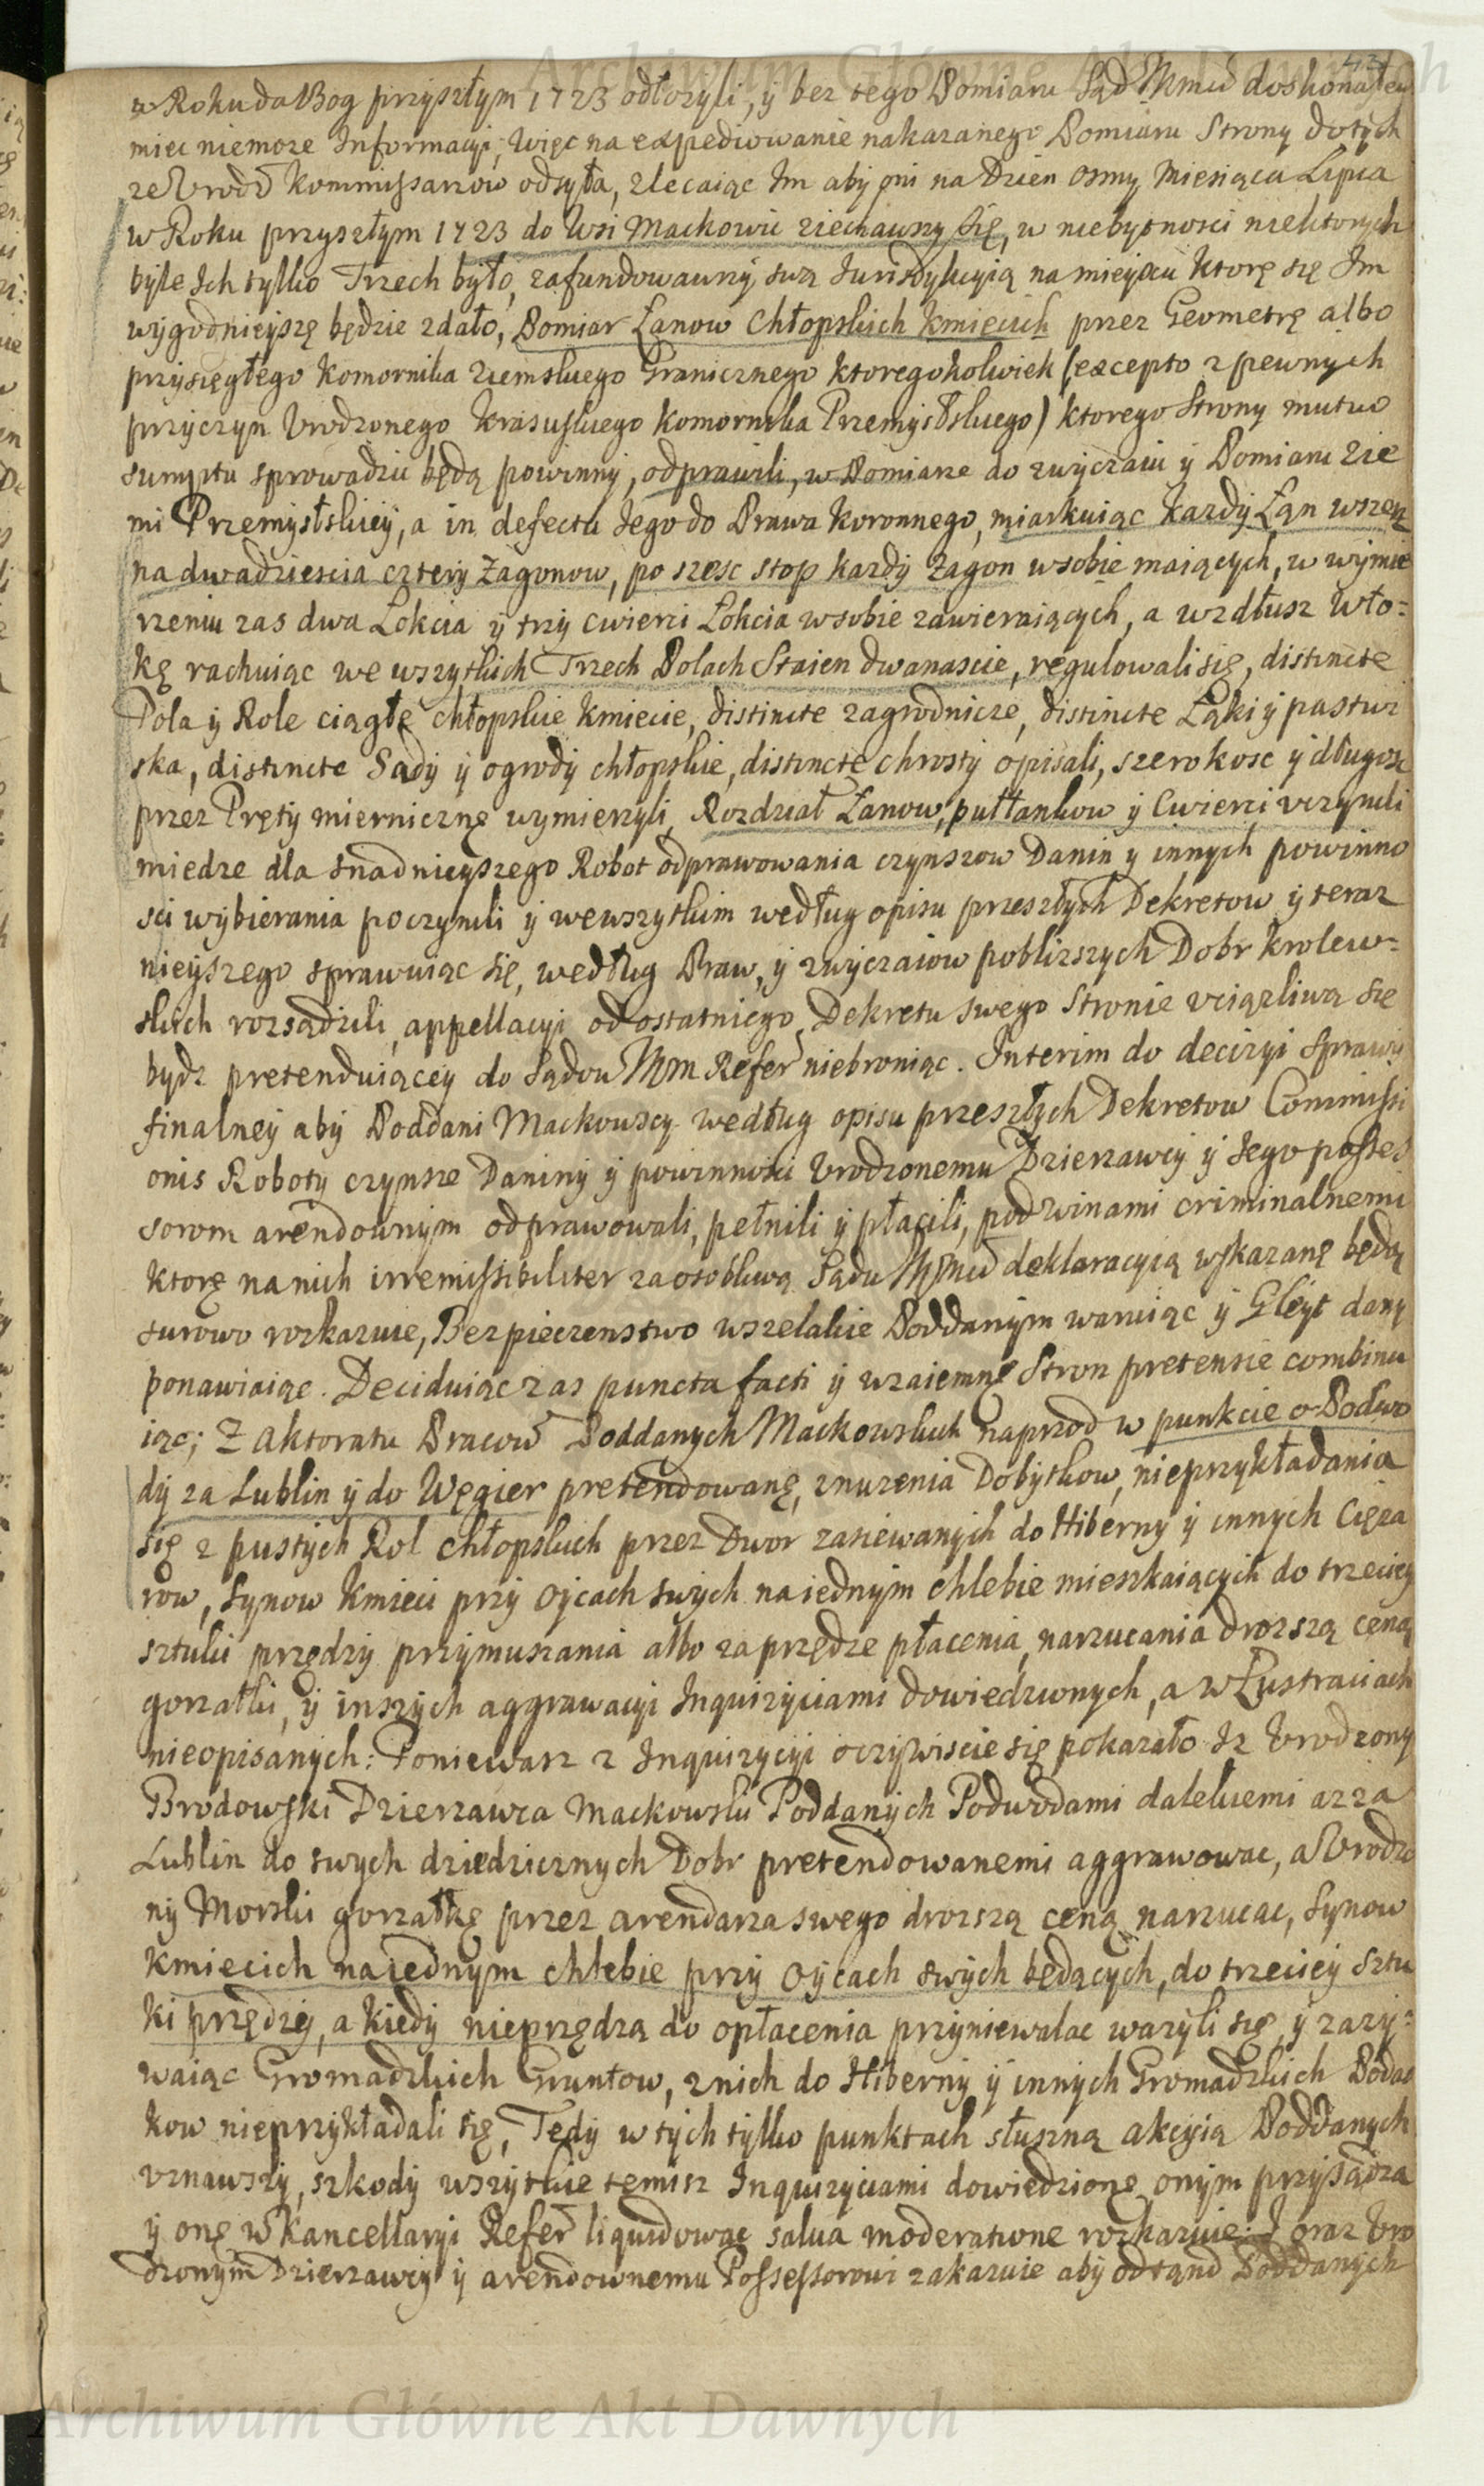 Archiwum Główne Akt Dawnych
w Roku da Bog przyszłym 1723 odłozyli, y bez tego Pomiaru Sąd Nmci doskonałey
miec niemoze Informacyi, Więc na expediowanie nakazanego Pomiaru Strony do tych
ze Urodz Kommissarzow odsyła, zlecaiąc Im aby oni na Dzien osmy Miesiąca Lipca
w Roku przyszłym 1723 do Wsi Mackowic ziechawszy się, w niebytnosci niektorych
byle Ich tylko Trzech było, zafundowawszy swą Jurisdykcyią na mieyscu ktorę się Im
wygodnieyszę będzie zdało, Pomiar Łanow Chłopskich Kmiecich przez Geometrę albo
przysięgłego Komornika Ziemskiego Granicznego ktoregokolwiek (excepto z pewnych
przyczyn Urodzonego Krasuskiego Komornika Przemyslskiego) ktorego Strony mutuo
sumptu sprowadzic będą powinny, odprawili, w Pomiarze do zwyczaiu y Pomiaru Zie
mi Przemyslskiey, a in defectu Iego do Prawa Koronnego, miarkuiąc każdy Łan wszerz
na dwadziescia cztery Zagonow, po szesc stop kazdy Zagon w sobie maiących, w wymie
rzeniu zas dwa Łokcia y trzy cwierci Łokcia w sobie zawieraiących, a wzdłusz Wło=
kę rachuiąc we wszytkich Trzech Polach Staien dwanascie, regulowali się, distincte
Pola y Role ciągłę chłopskie Kmiecie, distincte zagrodnicze, distincte Łąki y pastwi
ska, distincte Sady y ogrody chłopskie, distincte chrosty opisali, szerokosc y długosc
przez Pręty mierniczę wymierzyli, Rozdział Łanow, pułłankow y Cwierci uczynili
miedze dla snadnieyszego Robot odprawowania czynszow Danin y innych powinno
sci wybierania poczynili y wewszytkim według opisu przeszłych Dekretow y teraz
nieyszego sprawuiąc się, według Praw, y zwyczaiow poblizszych Dobr Krolew=
skich rozsądzili, appellacyi od ostatniego Dekretu swego Stronie uciązliwą się
bydz pretenduiącey do Sądow Nm Refer niebroniąc. Interim do decizyi Sprawy
finalney aby Poddani Mackowscy według opisu przeszłych Dekretow Commissi
onis Roboty czynsze Daniny y powinnosci Urodzonemu Dzierzawcy y Jego posses
sorom arendownym odprawowali, pełnili y płacili, pod winami criminalnemi
ktorę na nich irremissibiliter za osobliwą Sądu Nmci deklaracyią wskazanę będą
surowo rozkazuie, Bezpieczenstwo wszelakie Poddanym waruiąc y Gleyt dany
ponawiaiąc. Deciduiąc zas puncta facti y wzaiemnę Stron pretensie combinu
iąc; Z Aktoratu Pracow Poddanych Mackowskich naprzod w punkcie o Podwo
dy za Lublin y do Węgier pretendowanę, znuzenia Dobytkow, nieprzykładania
się z pustych Rol chłopskich przez Dwor zasiewanych do Hiberny y innych Cięza
row, Synow Kmieci przy Oycach swych na iednym chlebie mieszkaiących do trzeciey
sztuki przędzy przymuszania albo za przędze płacenia, narzucania drozszą ceną
gorzałki, y inszych aggrawacyi Inquizyciami dowiedzionych, a w Lustraciach
nieopisanych: Poniewasz z Inquizycyi oczywiscie się pokazało Iz Urodzony
Brodowski Dzierzawca Mackowski Poddanych Podwodami dalekiemi az za
Lublin do swych dziedzicznych Dobr pretendowanemi aggrawowac, a Urodzo
ny Morski gorzałkę przez arendarza swego drozszą ceną narzucac, Synow
Kmiecich na iednym chlebie przy Oycach swych będących, do trzeciey sztu
ki przędzy, a kiedy nieprzędzą do opłacenia przyniewalac wazyli się, y zazy=
waiąc Gromadzkich Gruntow, z nich do Hiberny y innych Gromadzkich Podat
kow nieprzykładali się, Tedy w tych tylko punktach słuszną akcyią Poddanych
uznawszy, szkody wszytkie temisz Inquizyciami dowiedzionę onym przysądza
y onę w Kancellaryi Refer liquidowac salva moderatione rozkazuie. I oraz Uro
dzonym Dzierzawcy y arendownemu Possessorowi zakazuie aby odtąnd Poddanych
Archiwum Główne Akt Dawnych